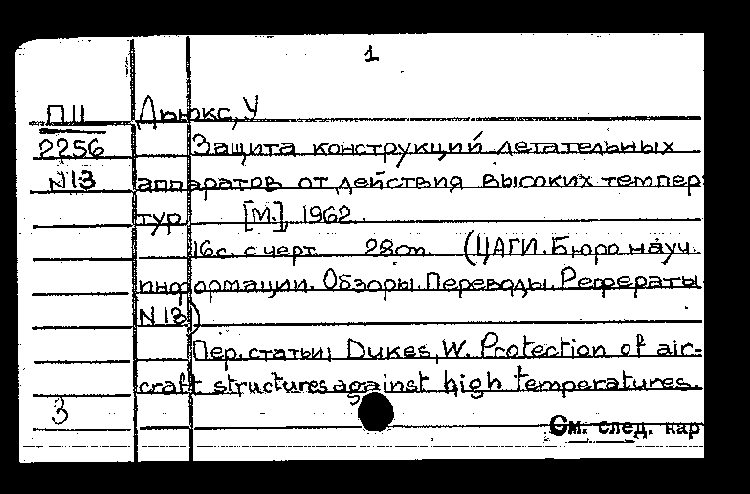 1
П11 Дьюкс, У
2256 Защита конструкций летательных
N13 аппаратов от действия высоких темпер
тур [М.], 1962.
16с. с черт. 28см. (ЦАГИ. Бюро науч.
информации. Обзоры. Переводы. Рефераты
N 13)
Пер. статьи: Dukes, W. Protection of air-
craft structures against high temperatures.
3
См. след. кар